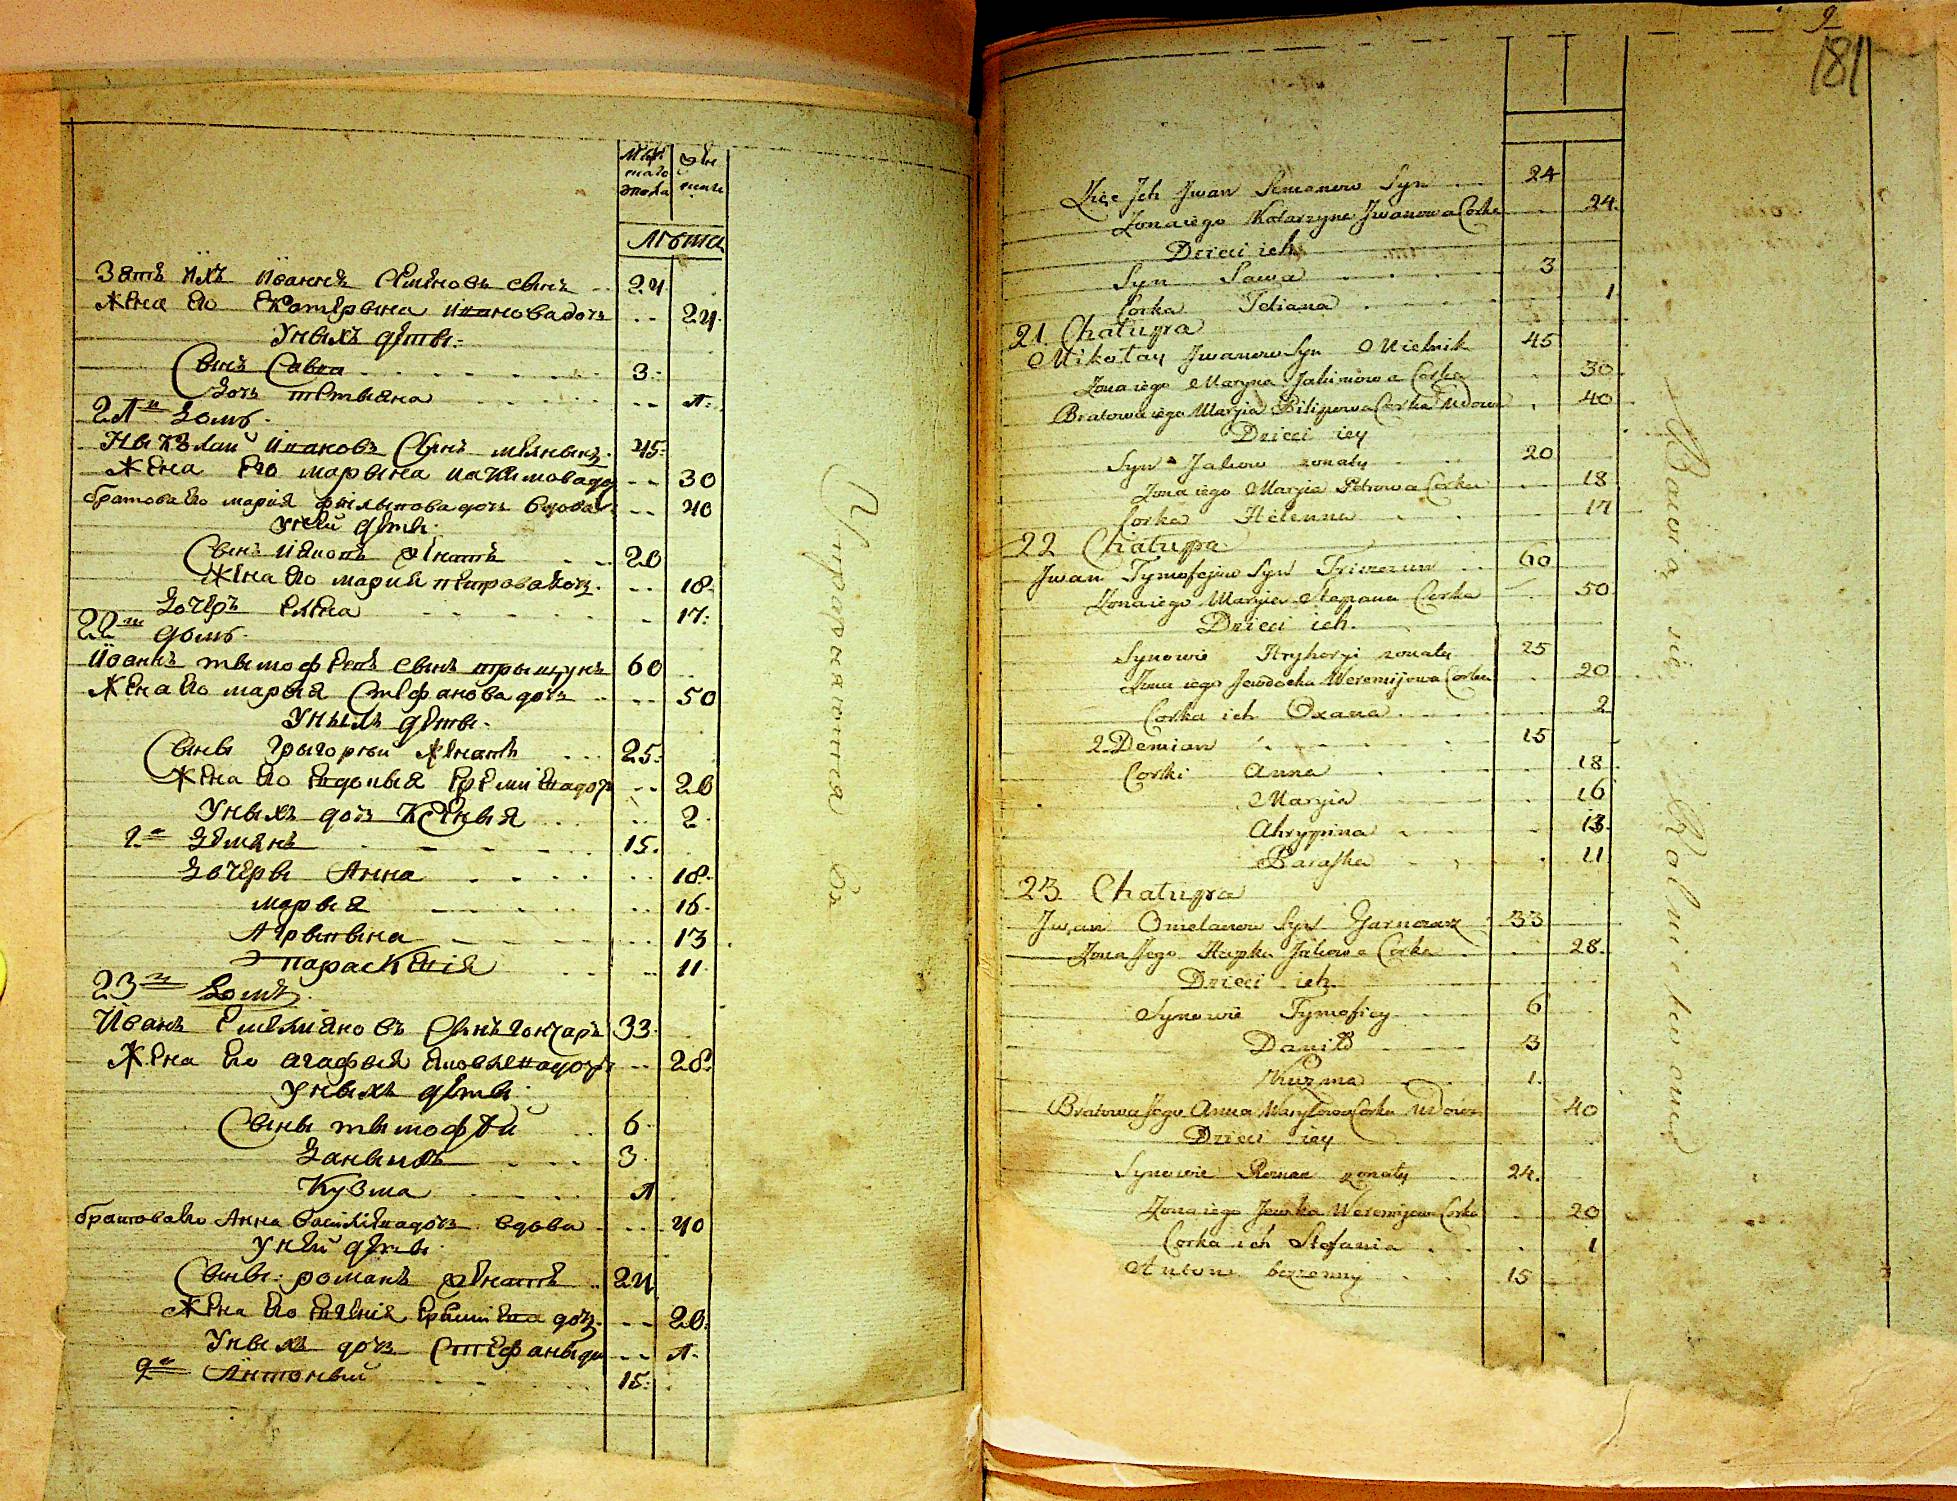 мужеска пола
женска
лѣта
Зять ихъ Иоаннъ Семеновъ сынъ 24
Жена его Екатерына Ивановадочь 24
Уныхъ дѣты
Сынъ Савва 3
Дочь Тетьяна 1
21 Домъ
Ныколай Ивановъ Сынъ мелныкъ 45
Жена его Марына Иакимовадо 30
братоваего Мария Филыповадочь вдова 40
Уней дѣты
Сынъ Иаковъ женатъ 20
Жена его Мария Петровадочь 18
Дочерь Елена 17
22 домъ
Иоаннъ Тымофеевъ сынъ 60
Жена его Марыя Стефановадочь 50
Уныхъ дѣты
Сыны Грыгорый женатъ 25
Жена его Евдокыя Еремиевадочь 20
Уныхъ дочь Ксеныя 2
2 Демянъ 15
Дочеры Анна 18
Марыя 16
Агрыпына 13
Параскевия 11
23 Домъ
Иванъ Емелияновъ Сынъ гончаръ 33
Жена его Агафыя 28
Уныхъ дѣты
Сыны Тымофей 6
Данылъ 3
Кузма 1
братоваего Анна Василиевадочь вдова 40
Уней дѣты
Сыны Романъ женатъ 24
Жена его Евгения Еремиева дочь 20
Уныхъ дочь Стефаныда 1
2 Антоный 15
Упражняются въ
9
181
Zięc Ich Jwan Semenow Syn 24
Zona iego Katarzyna Jwanowa Corka 24
Dzieci ich
Syn Sawa 3
Corka Tetiana 1
21 Chałupa
Mikołay Jwanow Syn Mielnik 45
Zona iego Maryna Jakimowa Corka 30
Bratowa iego Maryia Pilipowa Corka wdowa 40
Dzieci iey
Syn Jakow zonaty 20
Zona iego Maryia Petrowa Corka 18
Corka Helenna 17
22 Chałupa
Jwan Tymofejow Syn 60
Zona iego Maryia Stepana Corka 50
Dzieci ich
Synowie Hryhoryi zonaty 25
Zona iego Jewdocka Weremijowa Corka 20
Corka ich Oxana 2
2 Demian 15
Corki Anna 18
Maryia 16
Ahrypina 13
Paraska 11
23 Chałupa
Jwan Omelanow Syn Garncarz 33
Zona Jego Hapka Jakowa Corka 28
Dzieci ich
Synowie Tymofiey 6
Daniło 3
Kuzma 1
Bratowa Jego Anna Wasylowa Corka wdowa 40
Dzieci iey
Synowie Roman zonaty 24
Zona iego Jewka Weremijowa Corka 20
Corka ich Stefania 1
Anton bezzenny 15
Bawią się Rolnictwem